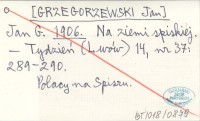 [GRZEGORZEWSKI Jan]
Jan G. 1906. Na ziemi spiskiej.
— Tydzień (Lwów) 14, nr 37:
289-290.
Polacy na Spiszu.
BT/018/0879